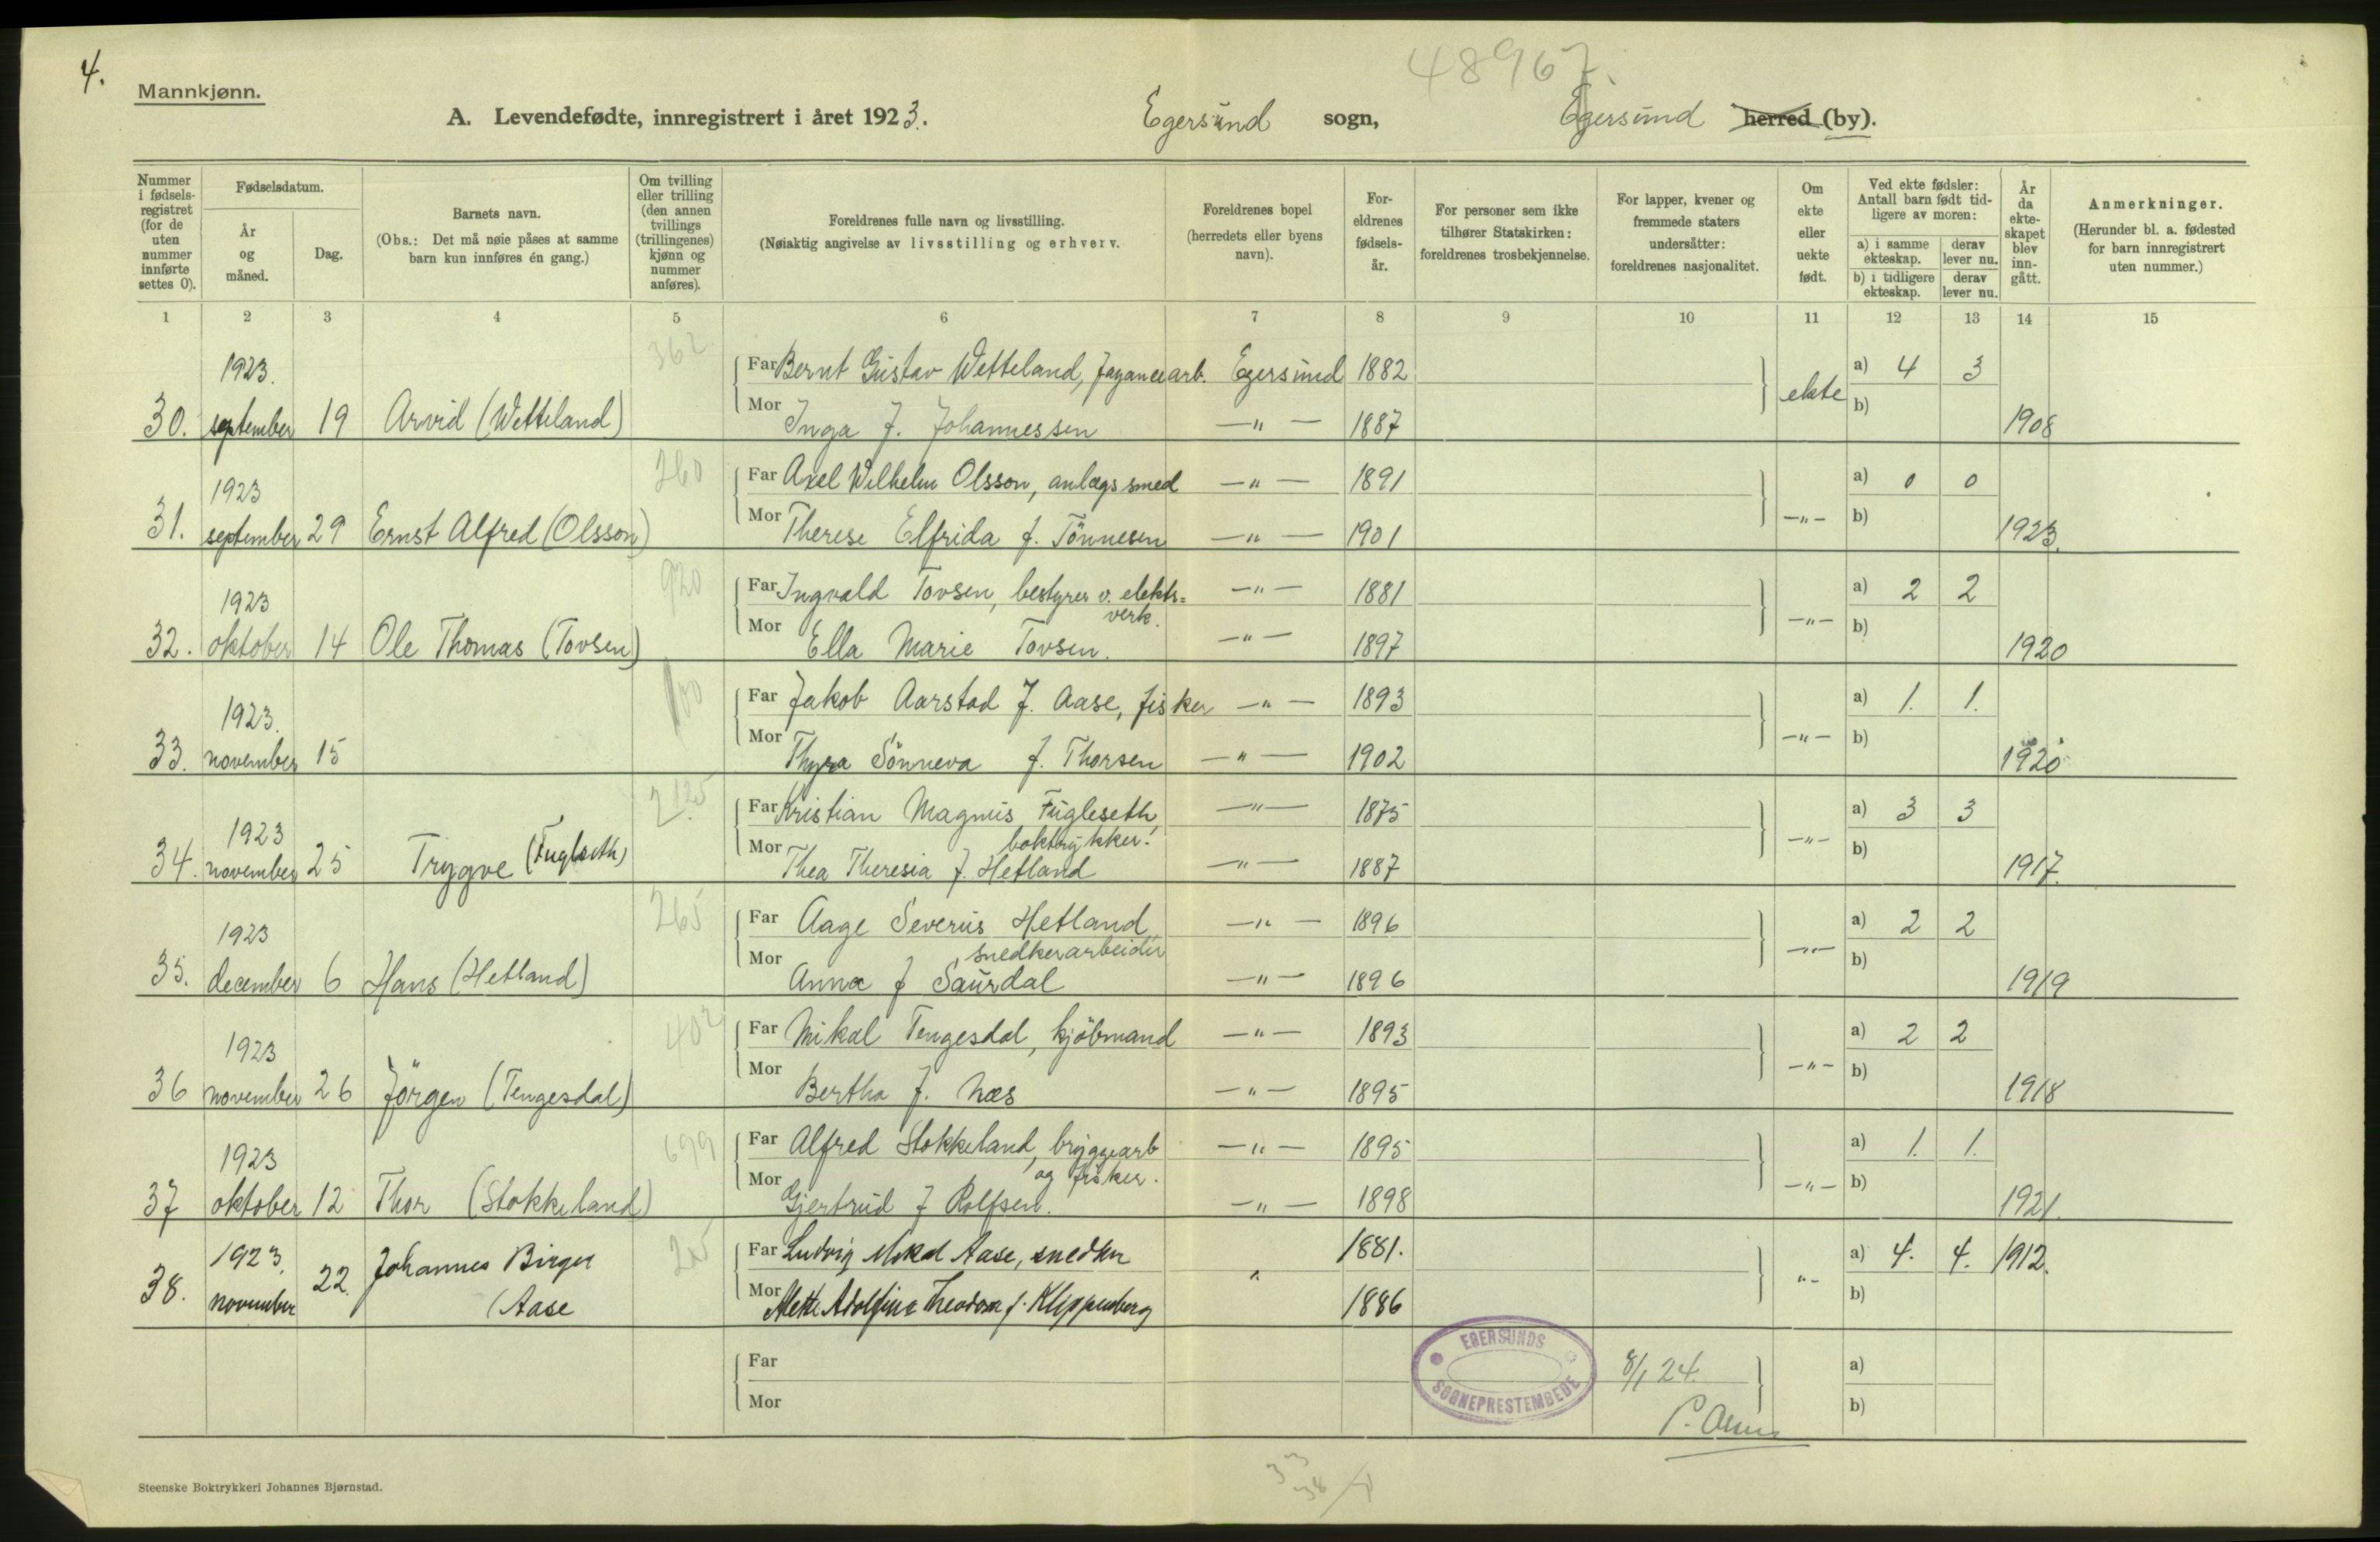 4.
48967.
Mannkjønn.
A. Levendefødte, innregistrert i året 1923. Egersund sogn, Egersund herred (by).
Nummer i fødsels-registret (for de uten nummer innførte settes 0).
Fødselsdatum.
År og måned.
Dag.
Barnets navn.
(Obs.: Det må nøie påses at samme barn kun innføres én gang.)
Om tvilling eller trilling (den annen tvillings (trillingenes) kjønn og nummer anføres).
Foreldrenes fulle navn og livsstilling.
(Nøiaktig angivelse av livsstilling og erhverv.
Foreldrenes bopel (herredets eller byens navn).
For-eldrenes fødsels-år.
For personer som ikke tilhører Statskirken: foreldrenes trosbekjennelse.
For lapper, kvener og fremmede staters undersåtter: foreldrenes nasjonalitet.
Om ekte eller uekte født.
Ved ekte fødsler: Antall barn født tid-ligere av moren:
a) i samme ekteskap.
derav lever nu.
b) i tidligere ekteskap.
derav lever nu.
År da ekte-skapet blev inn-gått.
Anmerkninger.
(Herunder bl. a. fødested for barn innregistrert uten nummer.)
1 2 3 4 5 6 7 8 9 10 11 12 13 14 15
362
1923. Far Bernt Gustav Wetteland, fayancearb. Egersund 1882 ekte a) 4 3
30. september 19 Arvid (Wetteland) Mor Inga f. Johannessen —"— 1887 b) 1908
260
1923 Far Axel Wilhelm Olsson, anlægssmed —"— 1891 a) 0 0
31. september 29 Ernst Alfred (Olsson) Mor Therese Elfrida f. Tönnesen —"— 1901 —"— b) 1923.
920
1923 Far Ingvald Tovsen, bestyrer v. elektr= —"— 1881 a) 2 2
verk.
32. oktober 14 Ole Thomas (Tovsen) Mor Ella Marie Tovsen. —"— 1897 —"— b) 1920
100
1923. Far Jakob Aarstad f. Aase, fisker —"— 1893 a) 1. 1.
33. november 15 Mor Thyra Sönneva f. Thorsen —"— 1902 —"— b) 1920
1923 Far Kristian Magnus Fugleseth, —"— 1875 a) 3 3
boktrykker.
34. november 25 Trygve (Fuglseth) Mor Thea Theresia f. Hetland —"— 1887 —"— b) 1917.
265
1923 Far Aage Severus Hetland, —"— 1896 a) 2 2
snedkerarbeider
35. december 6 Hans (Hetland) Mor Anna f Saurdal —"— 1896 —"— b) 1919
402
1923 Far Mikal Tengesdal, kjöbmand —"— 1893 a) 2 2
36 november 26 Jörgen (Tengesdal) Mor Bertha f. Næs —"— 1895 —"— b) 1918
699
1923 Far Alfred Stokkeland, bryggearb —"— 1895 a) 1. 1.
og fisker.
37 oktober 12 Thor (Stokkeland) Mor Gjertrud f Rolfsen. —"— 1898 —"— b) 1921.
1923. Johannes Birger Far Ludvig Mikal Aase, snedker " 1881. "- a) 4. 4. 1912.
38. november 22. (Aase Mor Mette Adolfine Theodora f. Klippenberg 1886 b)
Far a)
Mor b)
EGERSUNDS SOGNEPRESTEMBEDE
8/1 24.
33
38
Steenske Boktrykkeri Johannes Bjørnstad.